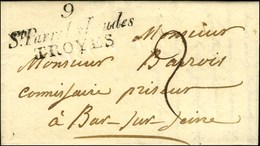 9
St Parre les Vaudes
TROYES
Monsieur
Monsieur Barrois
Comissaire priseur
à Bar sur Seine